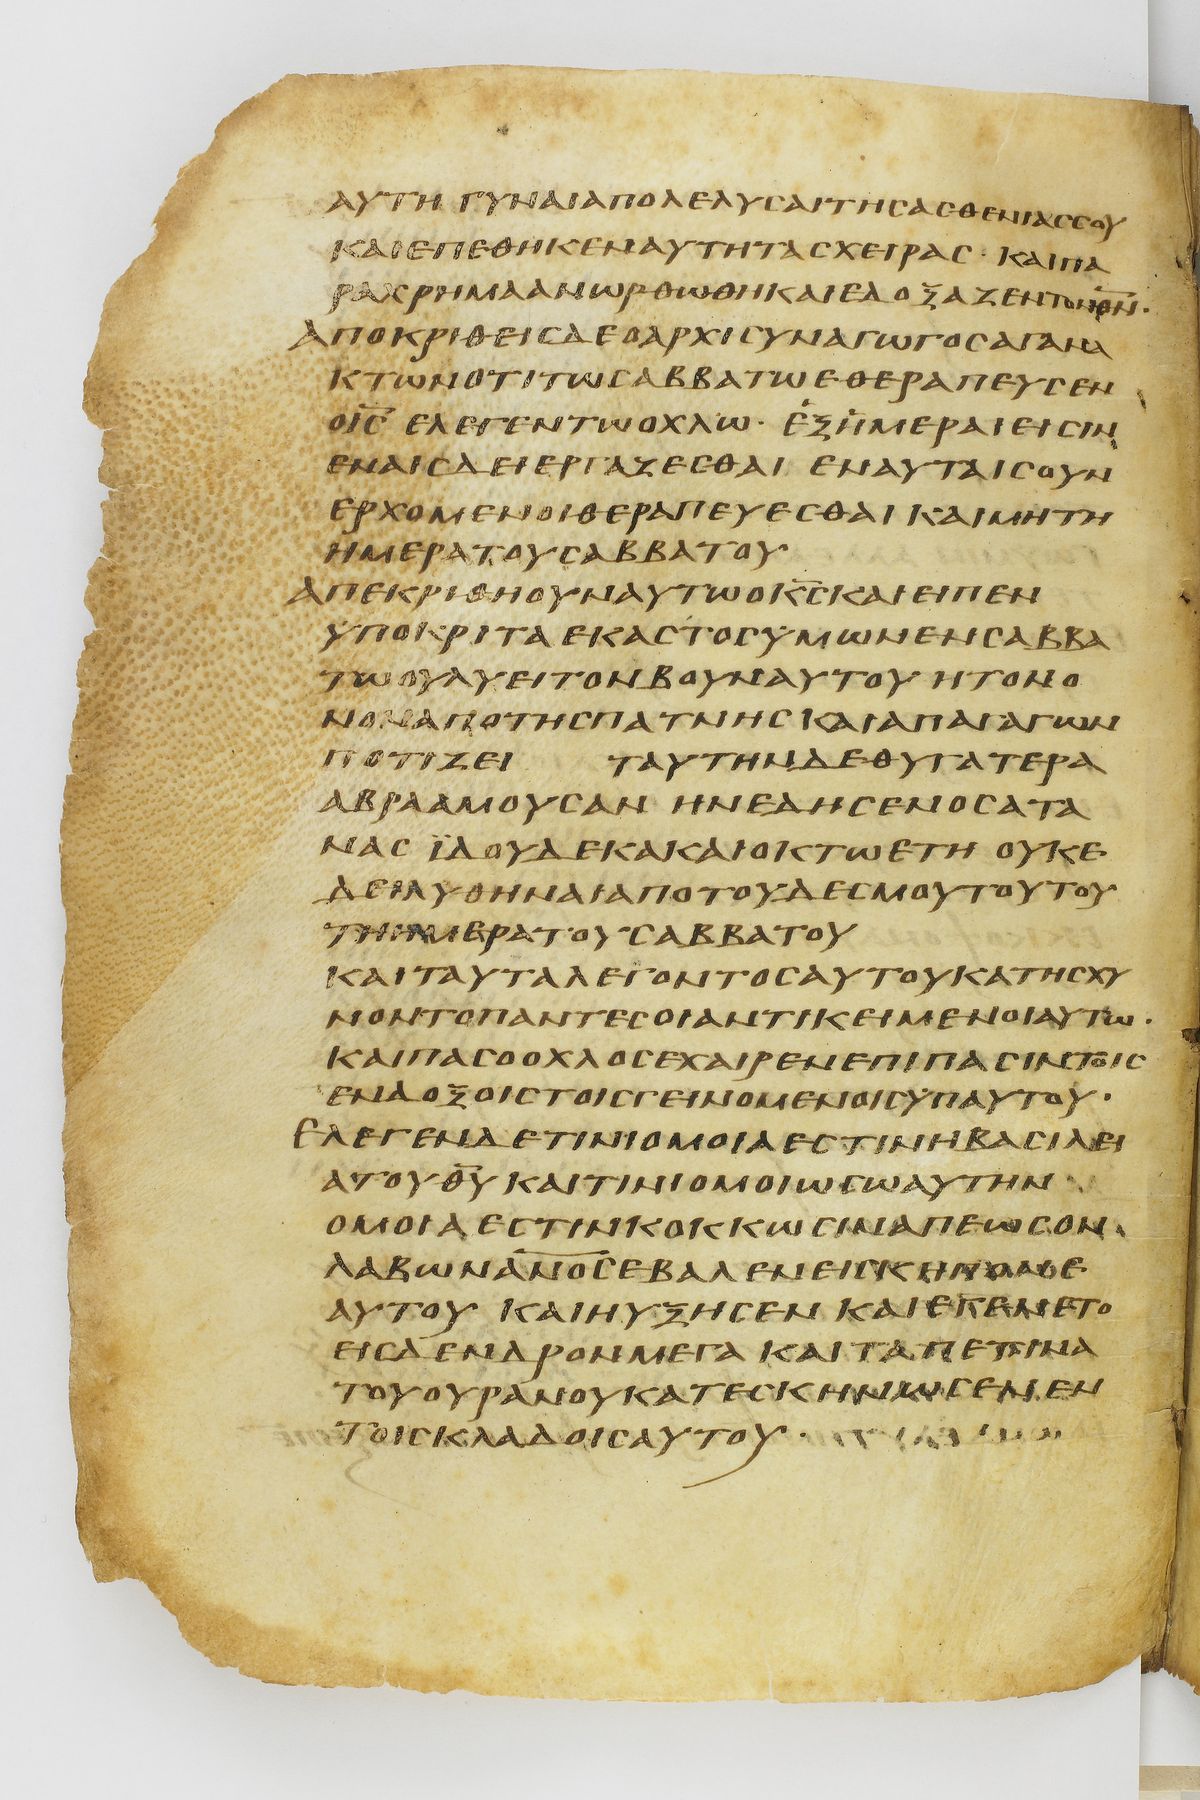 ΑΥΤΗ ΓΥΝΑΙΑΠΟΛΕΛΥϹΑΙΤΗϹΑϹΘΕΝΙΑϹϹΟΥ
ΚΑΙΕΠΕΘΗΚΕΝΑΥΤΗΤΑϹΧΕΙΡΑϹ · ΚΑΙΠΑ
ΡΑΧΡΗΜΑΑΝΩΡΘΩΘΗΚΑΙΕΔΟΞΑΖΕΝΤΟΝΘ̅Ν̅ ·
ΑΠΟΚΡΙΘΕΙϹΔΕΟΑΡΧΙϹΥΝΑΓΩΓΟϹΑΓΑΝΑ
ΚΤΩΝΟΤΙΤΩϹΑΒΒΑΤΩΕΘΕΡΑΠΕΥϹΕΝ
ΟΙ̅Ϲ̅ ΕΛΕΓΕΝΤΩΟΧΛΩ · ΕΞΗΜΕΡΑΙΕΙϹΙΝ
ΕΝΑΙϹΔΕΙΕΡΓΑΖΕϹΘΑΙ ΕΝΑΥΤΑΙϹΟΥΝ
ΕΡΧΟΜΕΝΟΙΘΕΡΑΠΕΥΕϹΘΑΙ ΚΑΙΜΗΤΗ
ΗΜΕΡΑΤΟΥϹΑΒΒΑΤΟΥ
ΑΠΕΚΡΙΘΗΟΥΝΑΥΤΩΟΚ̅Ϲ̅ΚΑΙΕΙΠΕΝ
ΥΠΟΚΡΙΤΑΕΚΑϹΤΟϹΥΜΩΝΕΝϹΑΒΒΑ
ΤΩΟΥΛΥΕΙΤΟΝΒΟΥΝΑΥΤΟΥ ΗΤΟΝΟ
ΝΟΝΑΠΟΤΗϹΠΑΤΝΗϹ ΚΑΙΑΠΑΓΑΓΩΝ
ΠΟΤΙΖΕΙ ΤΑΥΤΗΝΔΕΘΥΓΑΤΕΡΑ
ΑΒΡΑΑΜΟΥϹΑΝ ΗΝΕΔΗϹΕΝΟϹΑΤΑ
ΝΑϹ ΪΔΟΥΔΕΚΑΚΑΙΟΚΤΩΕΤΗ ΟΥΚΕ
ΔΕΙΛΥΘΗΝΑΙΑΠΟΤΟΥΔΕϹΜΟΥΤΟΥΤΟΥ
ΤΗΗΜΕΡΑΤΟΥϹΑΒΒΑΤΟΥ
ΚΑΙΤΑΥΤΑΛΕΓΟΝΤΟϹΑΥΤΟΥΚΑΤΗϹΧΥ
ΝΟΝΤΟΠΑΝΤΕϹΟΙΑΝΤΙΚΕΙΜΕΝΟΙΑΥΤΩ ·
ΚΑΙΠΑϹΟΟΧΛΟϹΕΧΑΙΡΕΝΕΠΙΠΑϹΙΝΤΟΙϹ
ΕΝΔΟΞΟΙϹΤΟΙϹΓΕΙΝΟΜΕΝΟΙϹΥΠΑΥΤΟΥ ·
ΕΛΕΓΕΝΔΕΤΙΝΙΟΜΟΙΑΕϹΤΙΝΗΒΑϹΙΛΕΙ
ΑΤΟΥΘ̅Υ̅ ΚΑΙΤΙΝΙΟΜΟΙΩϹΩΑΥΤΗΝ
ΟΜΟΙΑΕϹΤΙΝΚΟΚΚΩϹΙΝΑΠΕΩϹΟΝ
ΛΑΒΩΝΑ̅Ν̅Ο̅Ϲ̅ΕΒΑΛΕΝΕΙϹΚΗΠΟΝΕ
ΑΥΤΟΥ ΚΑΙΗΥΞΗϹΕΝ ΚΑΙΕΓΕΝΕΤΟ
ΕΙϹΔΕΝΔΡΟΝΜΕΓΑ ΚΑΙΤΑΠΕΤΙΝΑ
ΤΟΥΟΥΡΑΝΟΥΚΑΤΕϹΚΗΝΩϹΕΝΕΝ
ΤΟΙϹΚΛΑΔΟΙϹΑΥΤΟΥ ·